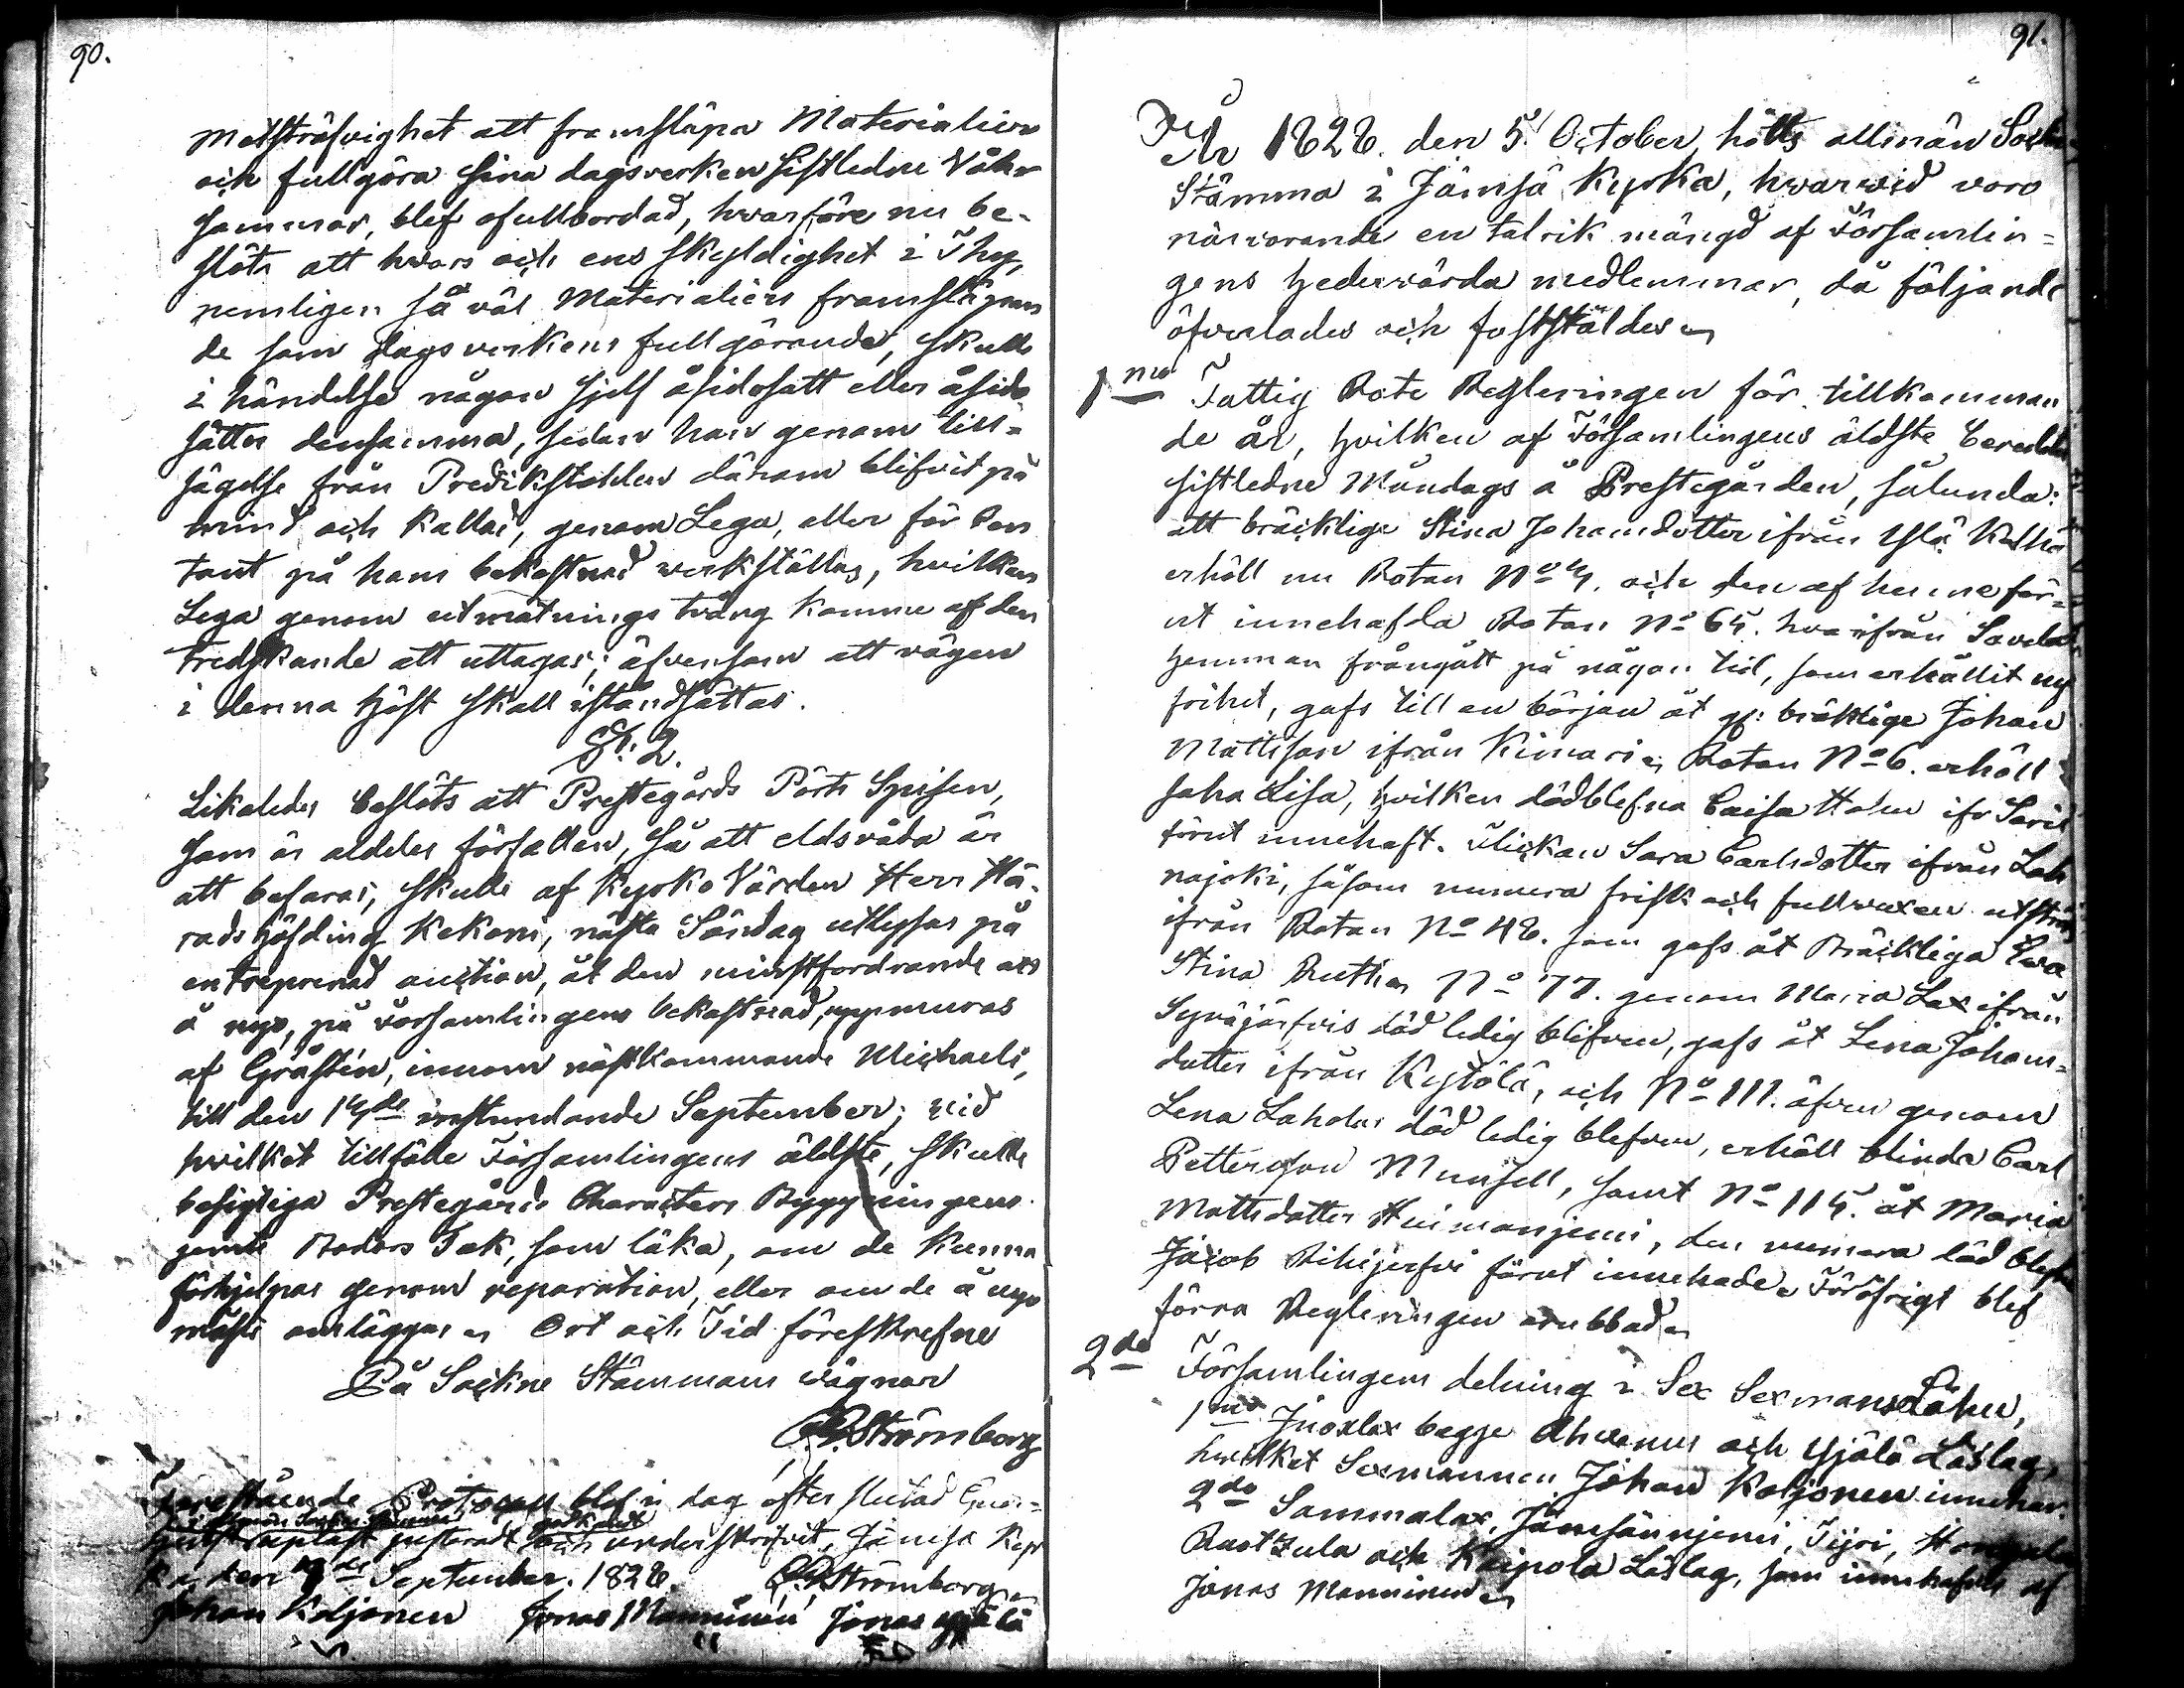 90.
Motsträfvighet att framsläpa Materialier
och fullgöra sina dagsverken sistledne Vår
sommar, blef ofullbordad, hvarföre nu be-
slöts att hvars och ens skyldighet i Thy,
nemligen så väl Materialiers framsläpan
de som dagsverkens fullgörande, skulle
i händelse någon sjelf åsidosatt eller åsido
sätter densamma, sedan han genom till-
sägelse från Predikstolen därom blifvit på
mind och kallad, genom Lega, eller för Con
tant på hans bekostnad verkställas, hvilken
Lega genom utmätnings tvång kommer af den
tredskande att uttagas; äfvensom att vägen
i denna höst skall iståndsättas.
§: 2.
Likaledes beslöts att Prestegårds Pörts Spisen,
som är aldeles förfallen, så att eldsvåda är
att befaras, skulle af Kyrko Värden Herr Hä-
radshöfding Kekoni, nästa Söndag utlysas på
entreprenad auction, åt den minstfordrande att
å nyo, på Församlingens bekostnad, uppmuras
af Gråsten, innom nästkommande Michaeli,
till den 14de instundande September; vid
hvilket tillfälle Församlingens äldste, skulle
besigtiga Prestegårds Characters Byggningens
jemte Boders Tak, som läka, om de kunna
förhjelpas genom reparation, eller om de å nyo
måste omläggas. Ort och Tid föreskrefne
På Sockne Stämmans vägnar
Strömborg
Förestående Protocoll blef i dag efter slutad Gud-
tjenst uppläst justeradt godkändt och underskrifvit, Jämsä Kyr
ka den 7de September. 1828. Strömborg
Johan Koljonen Jonas Manninen Jonas Yjälä
91.
År 1828. den 5. October, hölts allmän Sockne
Stämma i Jämsä Kyrka, hvarvid voro
närvarande en talrik mängd af Församlin-
gens hedervärda medlemmar, då följande
öfverlades och fastställdes
1mo Fattig Rote Regleringen för tillkomman
de år, hvilken af Församlingens äldste bereddes
sistledne Måndags å Prestegården, sålunda:
att bräcklige Stina Johansdotter ifrån Ylä
erhöll nu Rotan No 4. och den af henne för-
ut innehafda Rotan No 64. hvarifrån
hemman frångått på någon tid, som erhållit ny
frihet, gafs till en början åt bräcklige Johan
Mattsson ifrån Kimari. Rotan No 6. erhöll
Lisa, hvilken dödblefna Caisa ifr
förut innehaft. Flickan Sara Carlsdotter ifrån Lah
najoki, såsom numera frisk och fullvuxen
ifrån Rotan No 48. som gafs åt Bräckliga Eva
Stina Ruth. No 77. genom Maria Lax ifrån
Syväjärvis död ledig blifven, gafs åt Lena Johans-
dotter ifrån Kytölä, och No 111. äfven genom
Lena Laholas död ledig blefven, erhöll blinda Carl
Pettersson Munsell, samt No 114. åt Maria
Mattsdotter Huimanjemi, den numera död blefne
Jacob Rihijerfvi förut innehade. Föröfrigt blef
förra Regleringen orubbad
2do Församlingens delning i Sex SexmansLähn,
1mo Juoxlax begge Ahvenus och Yjälä Låslag,
hvilket Sexmannen Johan Koljonen innehar.
2do Sammalax, Jämsänniemi, Tijri,
Ruotzula och Kaipola Låslag, som innehafves af
Jonas Manninen